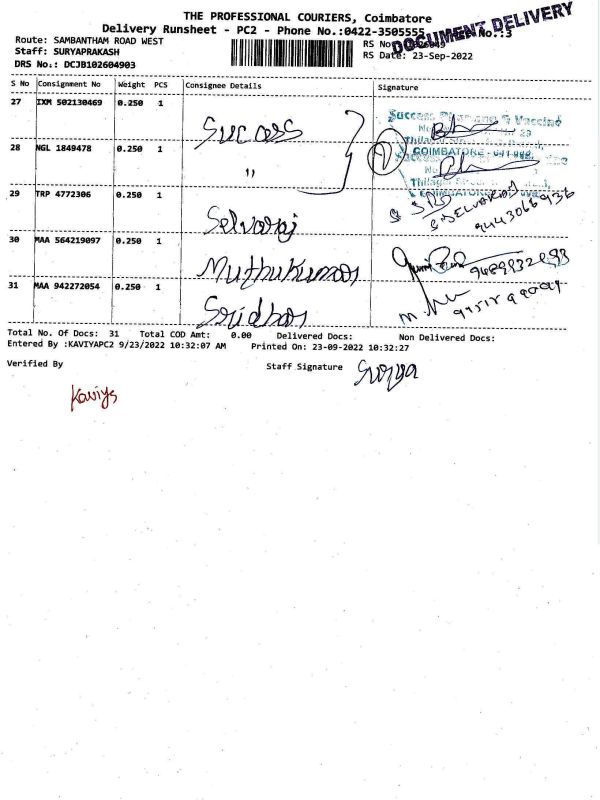 THE PROFESSIONAL COURIERS, Coimbatore
Delivery Runsheet - PC2 - Phone No.:0422-3505555
DOCUMENT DELIVERY
Route: SAMBANTHAM ROAD WEST
RS No
No.:3
Staff: SURYAPRAKASH
RS Date: 23-Sep-2022
DRS No.: DCJB102604903
S No Consignment No Weight PCS Consignee Details Signature
27 IXM 502130469 0.250 1 Success
28 NGL 1849478 0.250 1 "
COIMBATORE
29 TRP 4772306 0.250 1 Selvaraj
30 MAA 564219097 0.250 1 Muthukumar
31 MAA 942272054 0.250 1 Sridhar
Total No. Of Docs: 31 Total COD Amt: 0.00 Delivered Docs: Non Delivered Docs:
Entered By :KAVIYAPC2 9/23/2022 10:32:07 AM Printed On: 23-09-2022 10:32:27
Verified By Staff Signature Surya
Kaviya